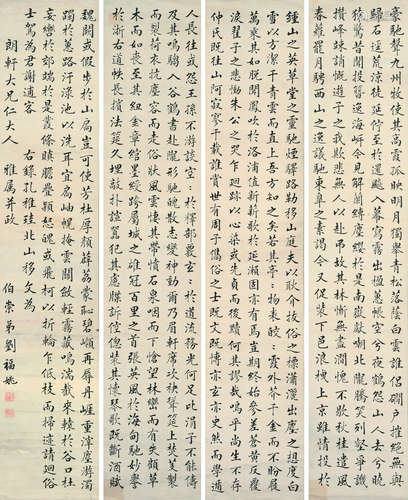 鍾山之英草堂之靈馳煙驛路勒移山庭夫以耿介拔俗之標瀟灑出塵之想度白
雪以方潔干青雲而直上吾方知之矣若其亭〻物表皎〻霞外芥千金而不盼屣
萬乘其如脫聞鳳吹於洛浦值薪歌於延瀨固亦有焉豈期終始參差蒼黃反覆
淚翟子之悲慟朱公之哭乍迴跡以心染或先貞而後黷何其謬哉嗚乎尚生不存
仲氏既往山阿寂寥千載誰賞世有周子儁俗之士既文既博亦玄亦史然而學遁
人長往或怨王孫不游談空〻於釋部覈玄〻於道流務光何足比涓子不能儔
及其鳴騶入谷鶴書赴隴形馳魄散志變神動爾乃眉軒席次袂聳筵上焚芰製
而裂荷衣抗塵容而走俗狀風雲悽其帶憤石泉咽而下愴望林巒而有失顧草
木而如喪至其紐金章綰墨綬跨屬城之雄冠百里之首張英風於海甸馳妙譽
於浙右道帙長擯法筵久埋敲扑諠囂犯其慮牒訴倥傯裝其懷琴歌既斷酒賦
豪馳聲九州牧使其高霞孤映明月獨舉青松落陰白雲誰侶磵戶摧絕無與
歸石逕荒涼徒延佇至於還飆入幕寫霧出楹蕙帳空兮夜鶴怨山人去兮曉
猿驚昔聞投簪逸海岸今見解蘭縛塵纓於是南嶽獻嘲北隴騰笑列壑爭譏
攢峰竦誚慨遊子之我欺悲無人以赴弔故其林慚無盡澗愧不歇秋桂遺風
春蘿罷月騁西山之逸議馳東皋之素謁今又促裝下邑浪栧上京雖情投於
魏闕或假步於山扃豈可使芳杜厚顏薜荔蒙恥碧嶺再辱丹崖重滓塵游躅
於蕙路汙淥池以洗耳宜扃岫幌掩雲關斂輕霧藏鳴湍截來轅於谷口杜
妄轡於郊端於是叢條瞋膽疊穎怒魄或飛柯以折輪乍低枝而掃迹請迴俗
士駕為君謝逋客
右錄孔稚珪北山移文為
朗軒大兄仁大人 雅屬并政
伯崇弟劉福姚